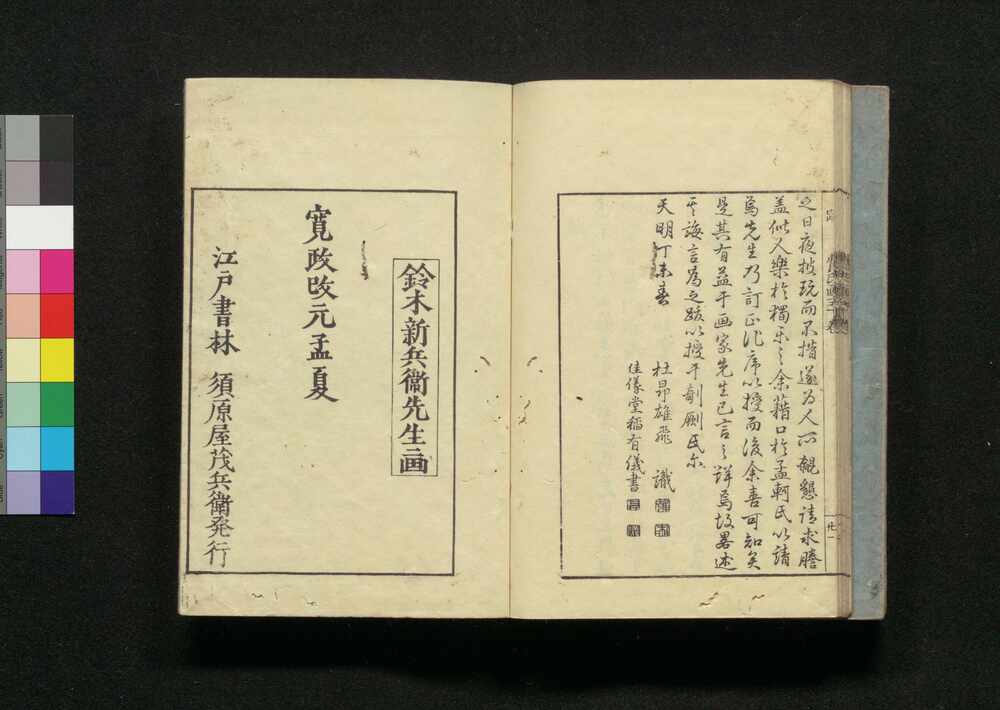 之日夜披玩而不措遂为人所覩懇请求謄
盖似人樂於獨乐之余藉口於孟軻氏以請
焉先生乃訂正作序以授而後余喜可知矣
是其有益于画家先生已言之詳焉故畧述
其誨言為之跋以授于剞劂氏尒
天明丁未春
杜昂雄飛 識
佳儀堂稲有儀書
跋
廿一
鈴木新兵衞先生画
寛政改元孟夏
江戸書林 須原屋茂兵衛発行